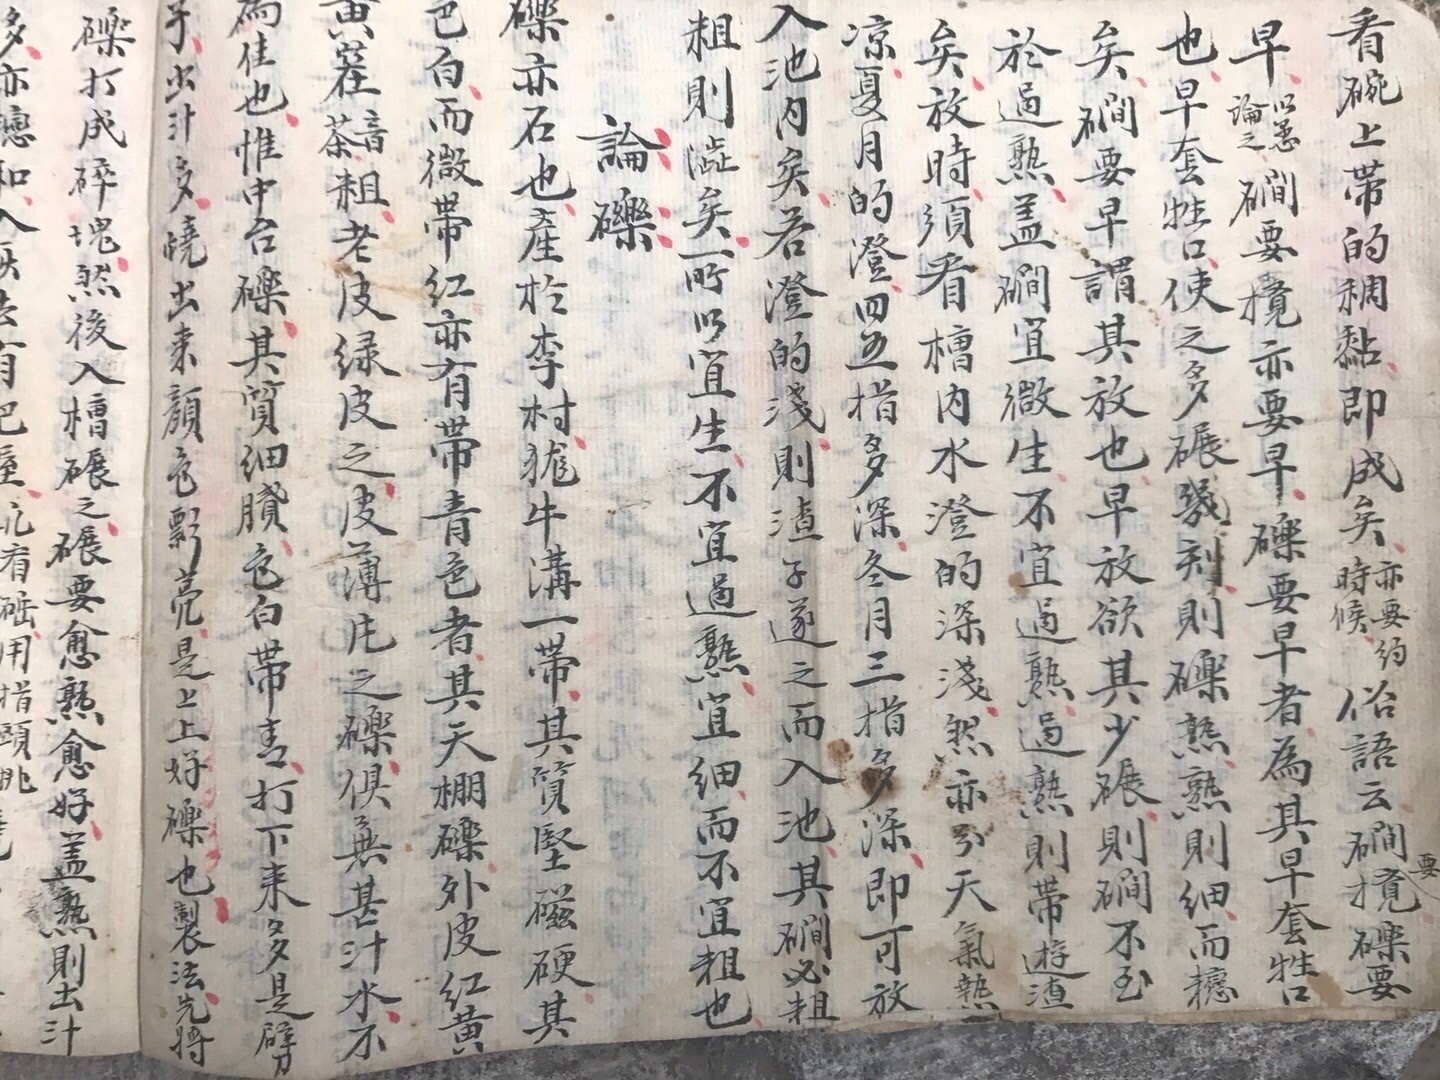 看碗上帶的稠黏即成矣亦要約時候俗語云磵要攪礫要
早以恙論之磵要攪亦要早礫要早者為其早套牲口
也早套牲口使之多碾幾刻則礫熟熟則細而穩
矣磵要早謂其放也早放欲其少碾則磵不至
於過熟盖磵宜微生不宜過熟過熟則帶遊渣
矣放時須看槽內水澄的深淺然亦分天氣熱
凉夏月的澄四五指多深冬月三指多深即可放
入池內矣若澄的淺則渣子遂之而入池其磵必粗
粗則澁矣所以宜生不宜過熟宜細而不宜粗也
論礫
礫亦石也產於李村犹牛溝一帶其質堅磁硬其
色白而微帶紅亦有帶青色者其天棚礫外皮紅黃
黃茬音茶粗老皮綠皮之皮薄片之礫俱無甚汁水不
為佳也惟中台礫其質細膩色白帶青打下來多是劈
子出汁多燒出來顏色彩亮是上上好礫也製法先將
礫打成碎塊然後入槽碾之碾要愈熟愈好盖熟則出汁
多亦穩和入